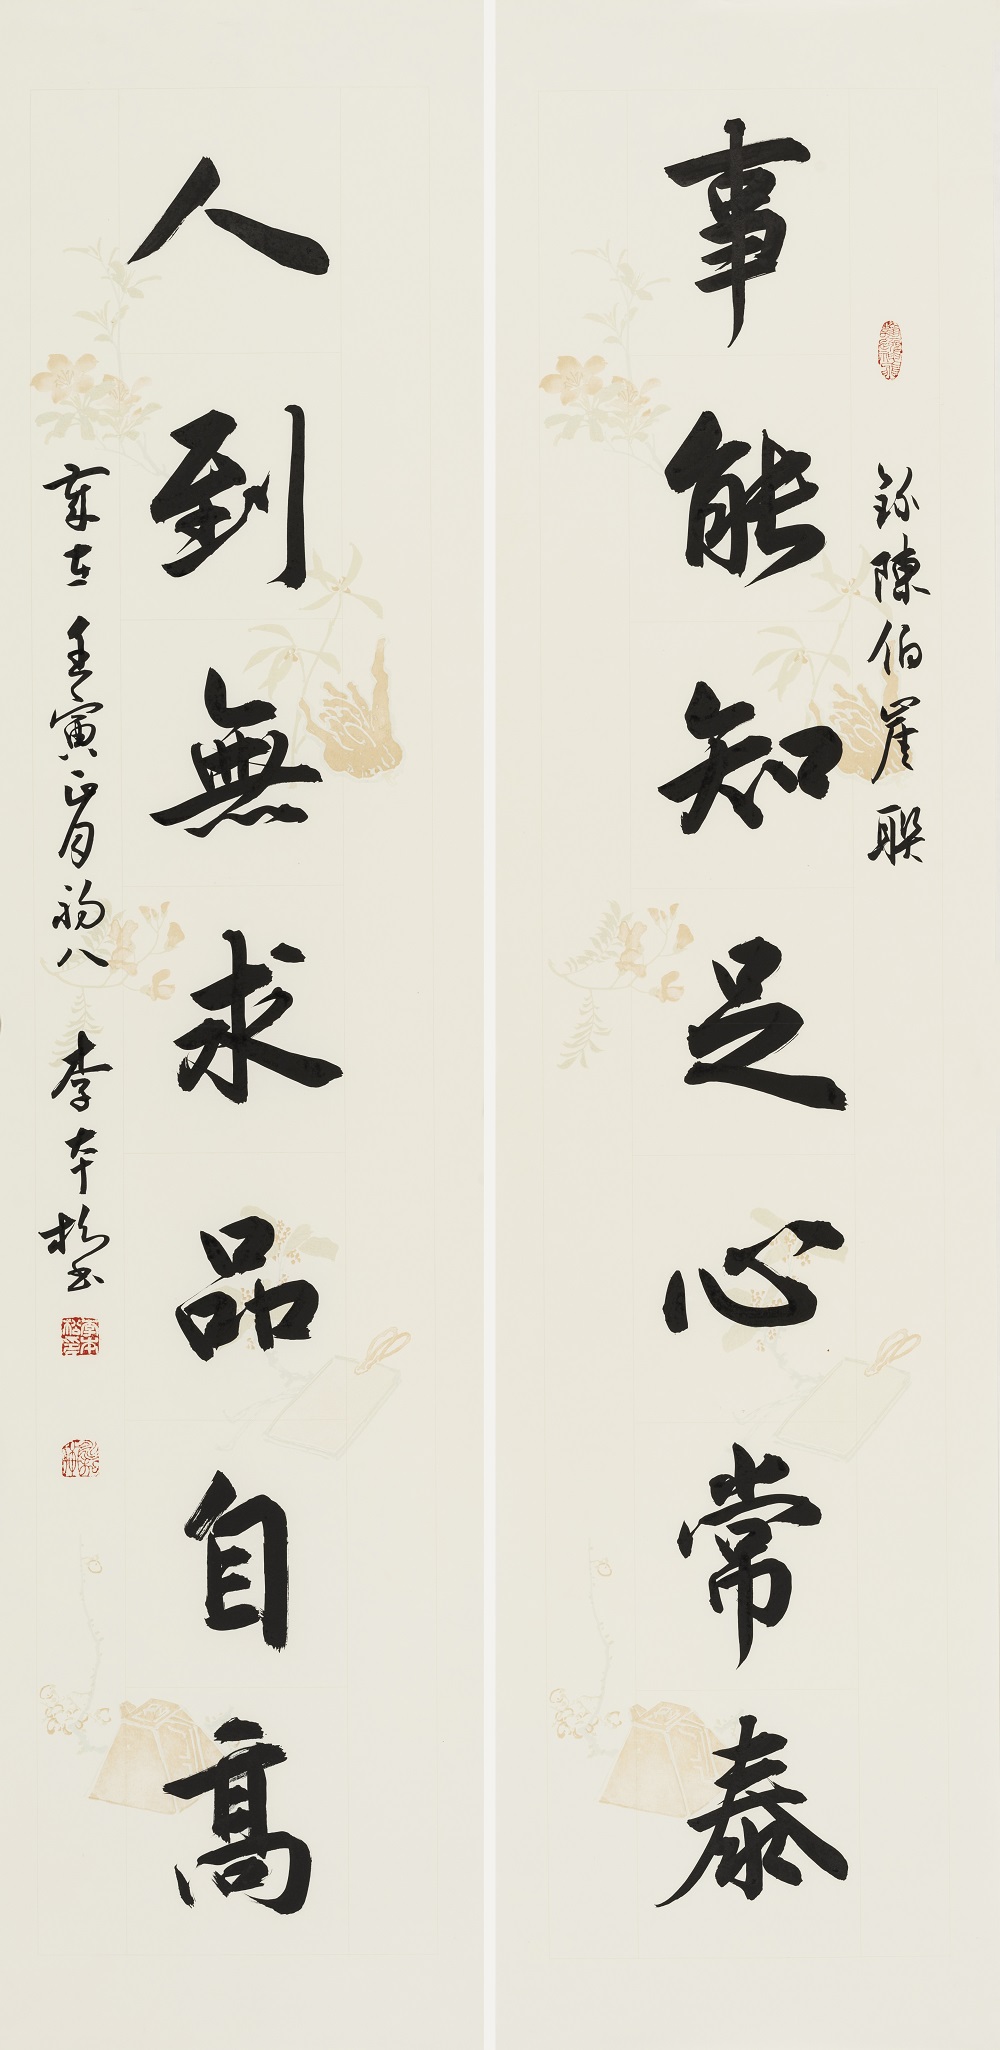 事能知足心常泰
錄陳伯崖聯
人到無求品自高
歲在壬寅正月初八 李本松書